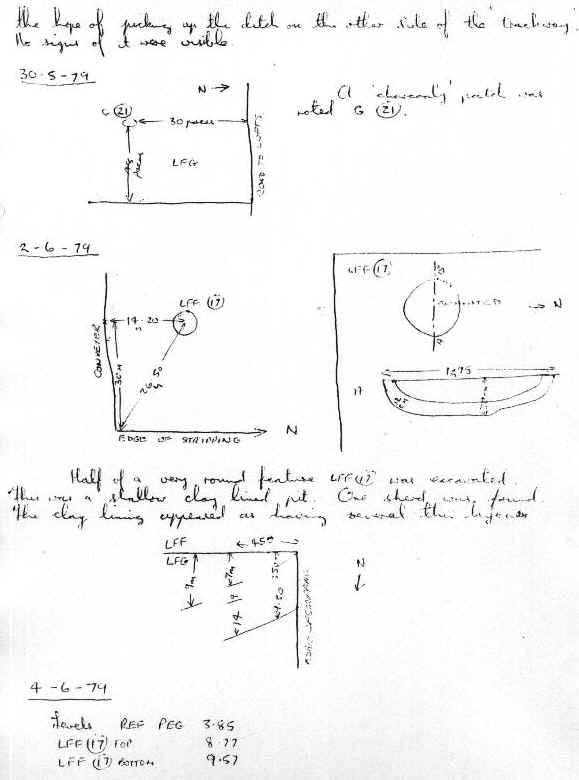 the hope of picking up the ditch on the other side of the trackway.
No signs of it were visible.
30-5-79
N →
G (21)
30 paces
paces
LFG
ROAD TO LUFFS
A 'charcoally' patch was
noted G (21).
2-6-79
LFF (17)
14.20
CONVEYER
30m
N
EDGE OF STRIPPING
LFF (17)
N
1.75
17
Half of a very round feature LFF (17) was excavated.
This was a shallow clay lined pit. One sherd was found.
The clay lining appeared as having several thin layers
LFF
LFG
45m
9m
7m
14
N
EDGE OF STRIPPING
4-6-79
Levels REF PEG 3.85
LFF (17) TOP 8.77
LFF (17) BOTTOM 9.57